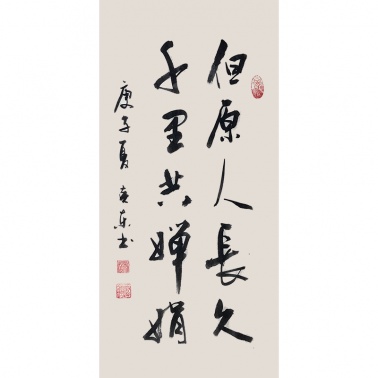 但原人長久
千里共嬋娟
庚子夏 东书